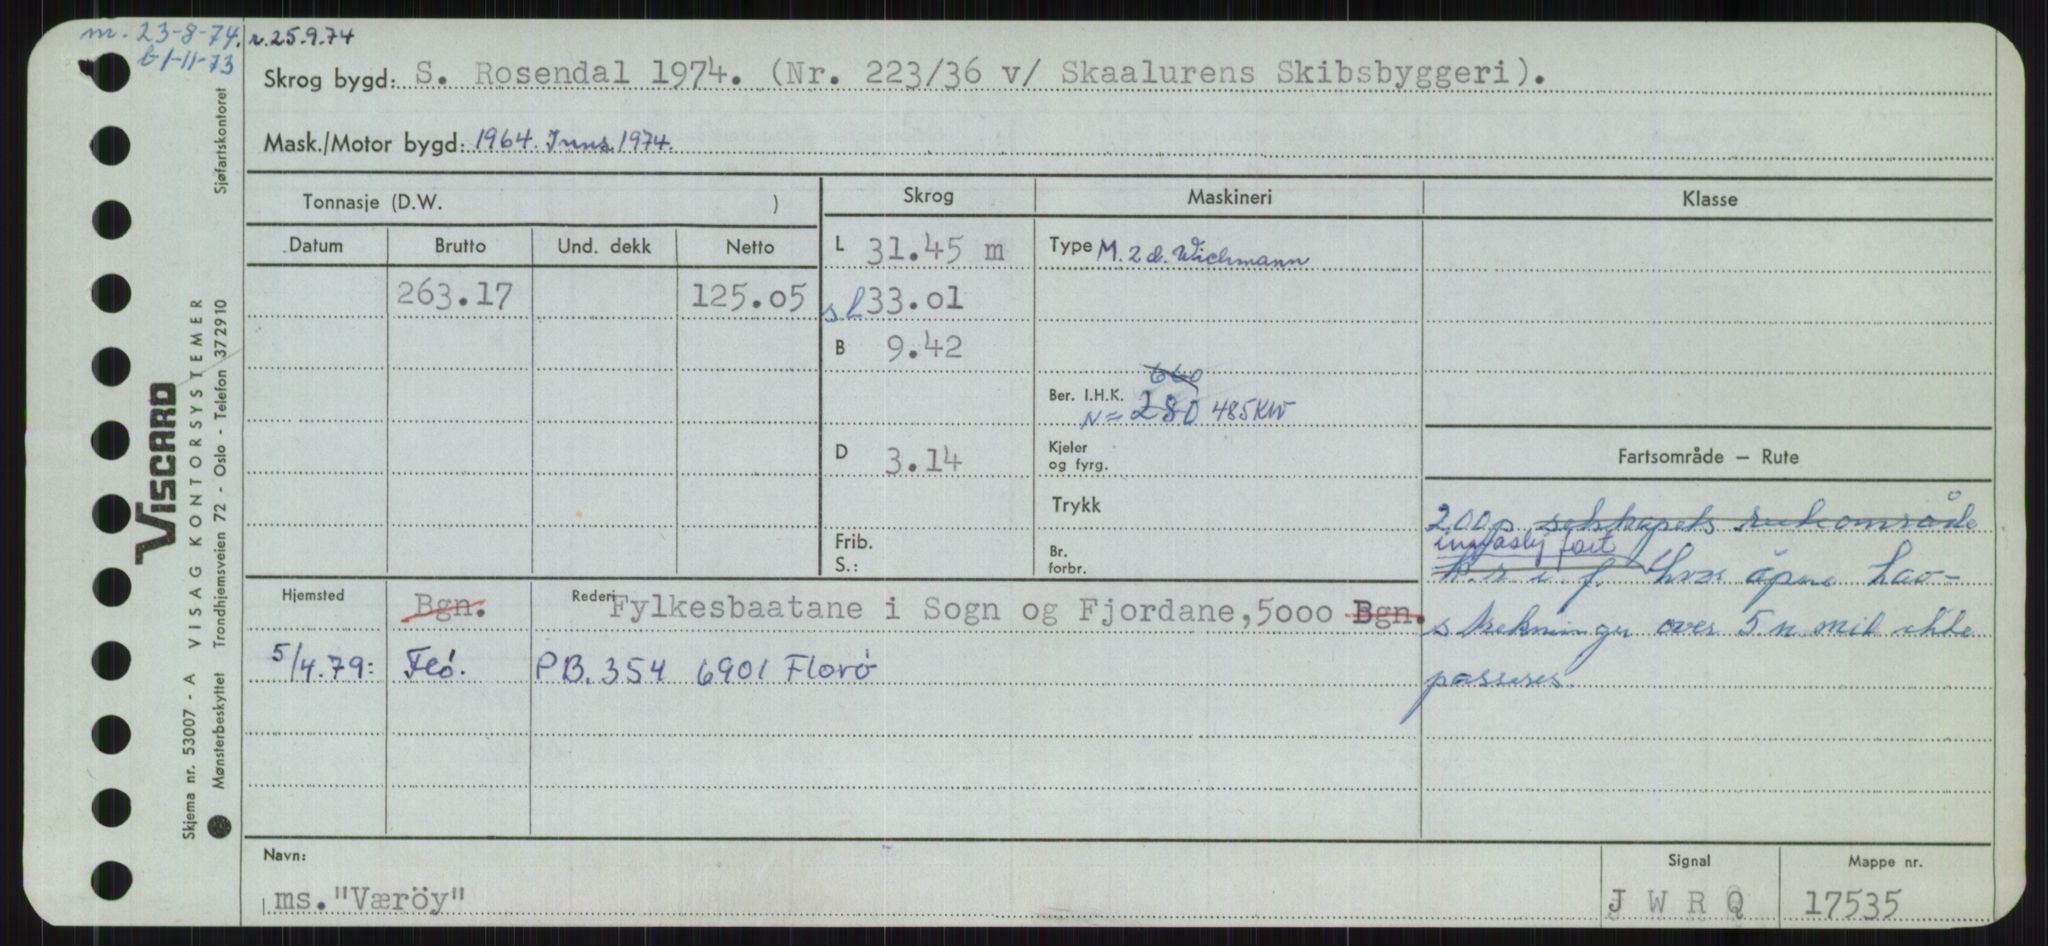 m. 23-8-74. r. 25.9.74
b 1-11-73
Skrog bygd: S. Rosendal 1974. (Nr. 223/36 v/ Skaalurens Skibsbyggeri).
Mask./Motor bygd: 1964. Inns. 1974.
Tonnasje (D.W. ) Skrog Maskineri Klasse
Datum Brutto Und. dekk Netto L 31.45 m Type M. 2 d. Wichmann
263.17 125.05 s l 33.01
B 9.42
660
Ber. I.H.K.
N = 280 485KW
D 3.14 Kjeler
og fyrg.
Fartsområde – Rute
Trykk
200p selskapets ruteområde
innaskj fart
Frib. Br.
S.: forbr.
k. r i f. hvor åpne hav-
Hjemsted Bgn. Rederi Fylkesbaatane i Sogn og Fjordane, 5000 Bgn.
strekninger over 5 n mil ikke
5/4.79: Flö. P.B. 354 6901 Florö
passeres
Navn: Signal Mappe nr.
ms. "Væröy" J W R Q 17535
VISCARD
Skjema nr. 53007 - A VISAG KONTORSYSTEMER
Mønsterbeskyttet Trondhjemsveien 72 - Oslo - Telefon 372910 Sjøfartskontoret